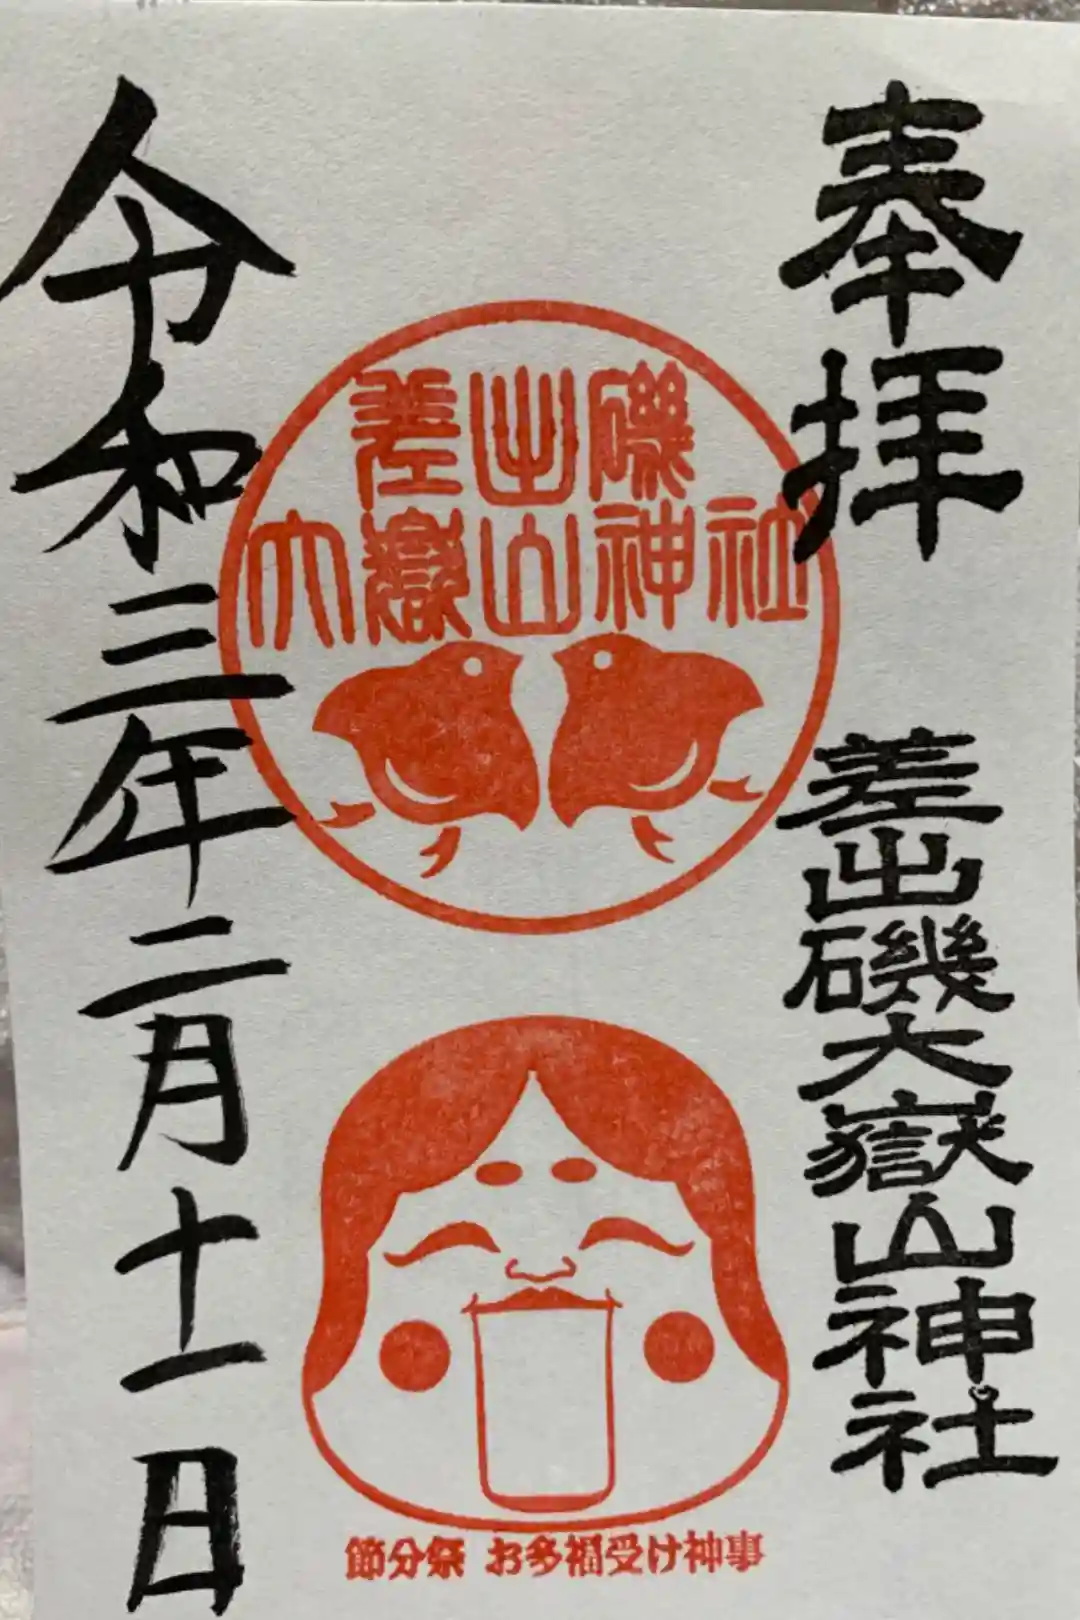 奉拝
差出磯大嶽山神社
差出磯
大嶽山神社
節分祭 お多福受け神事
令和三年二月十一日